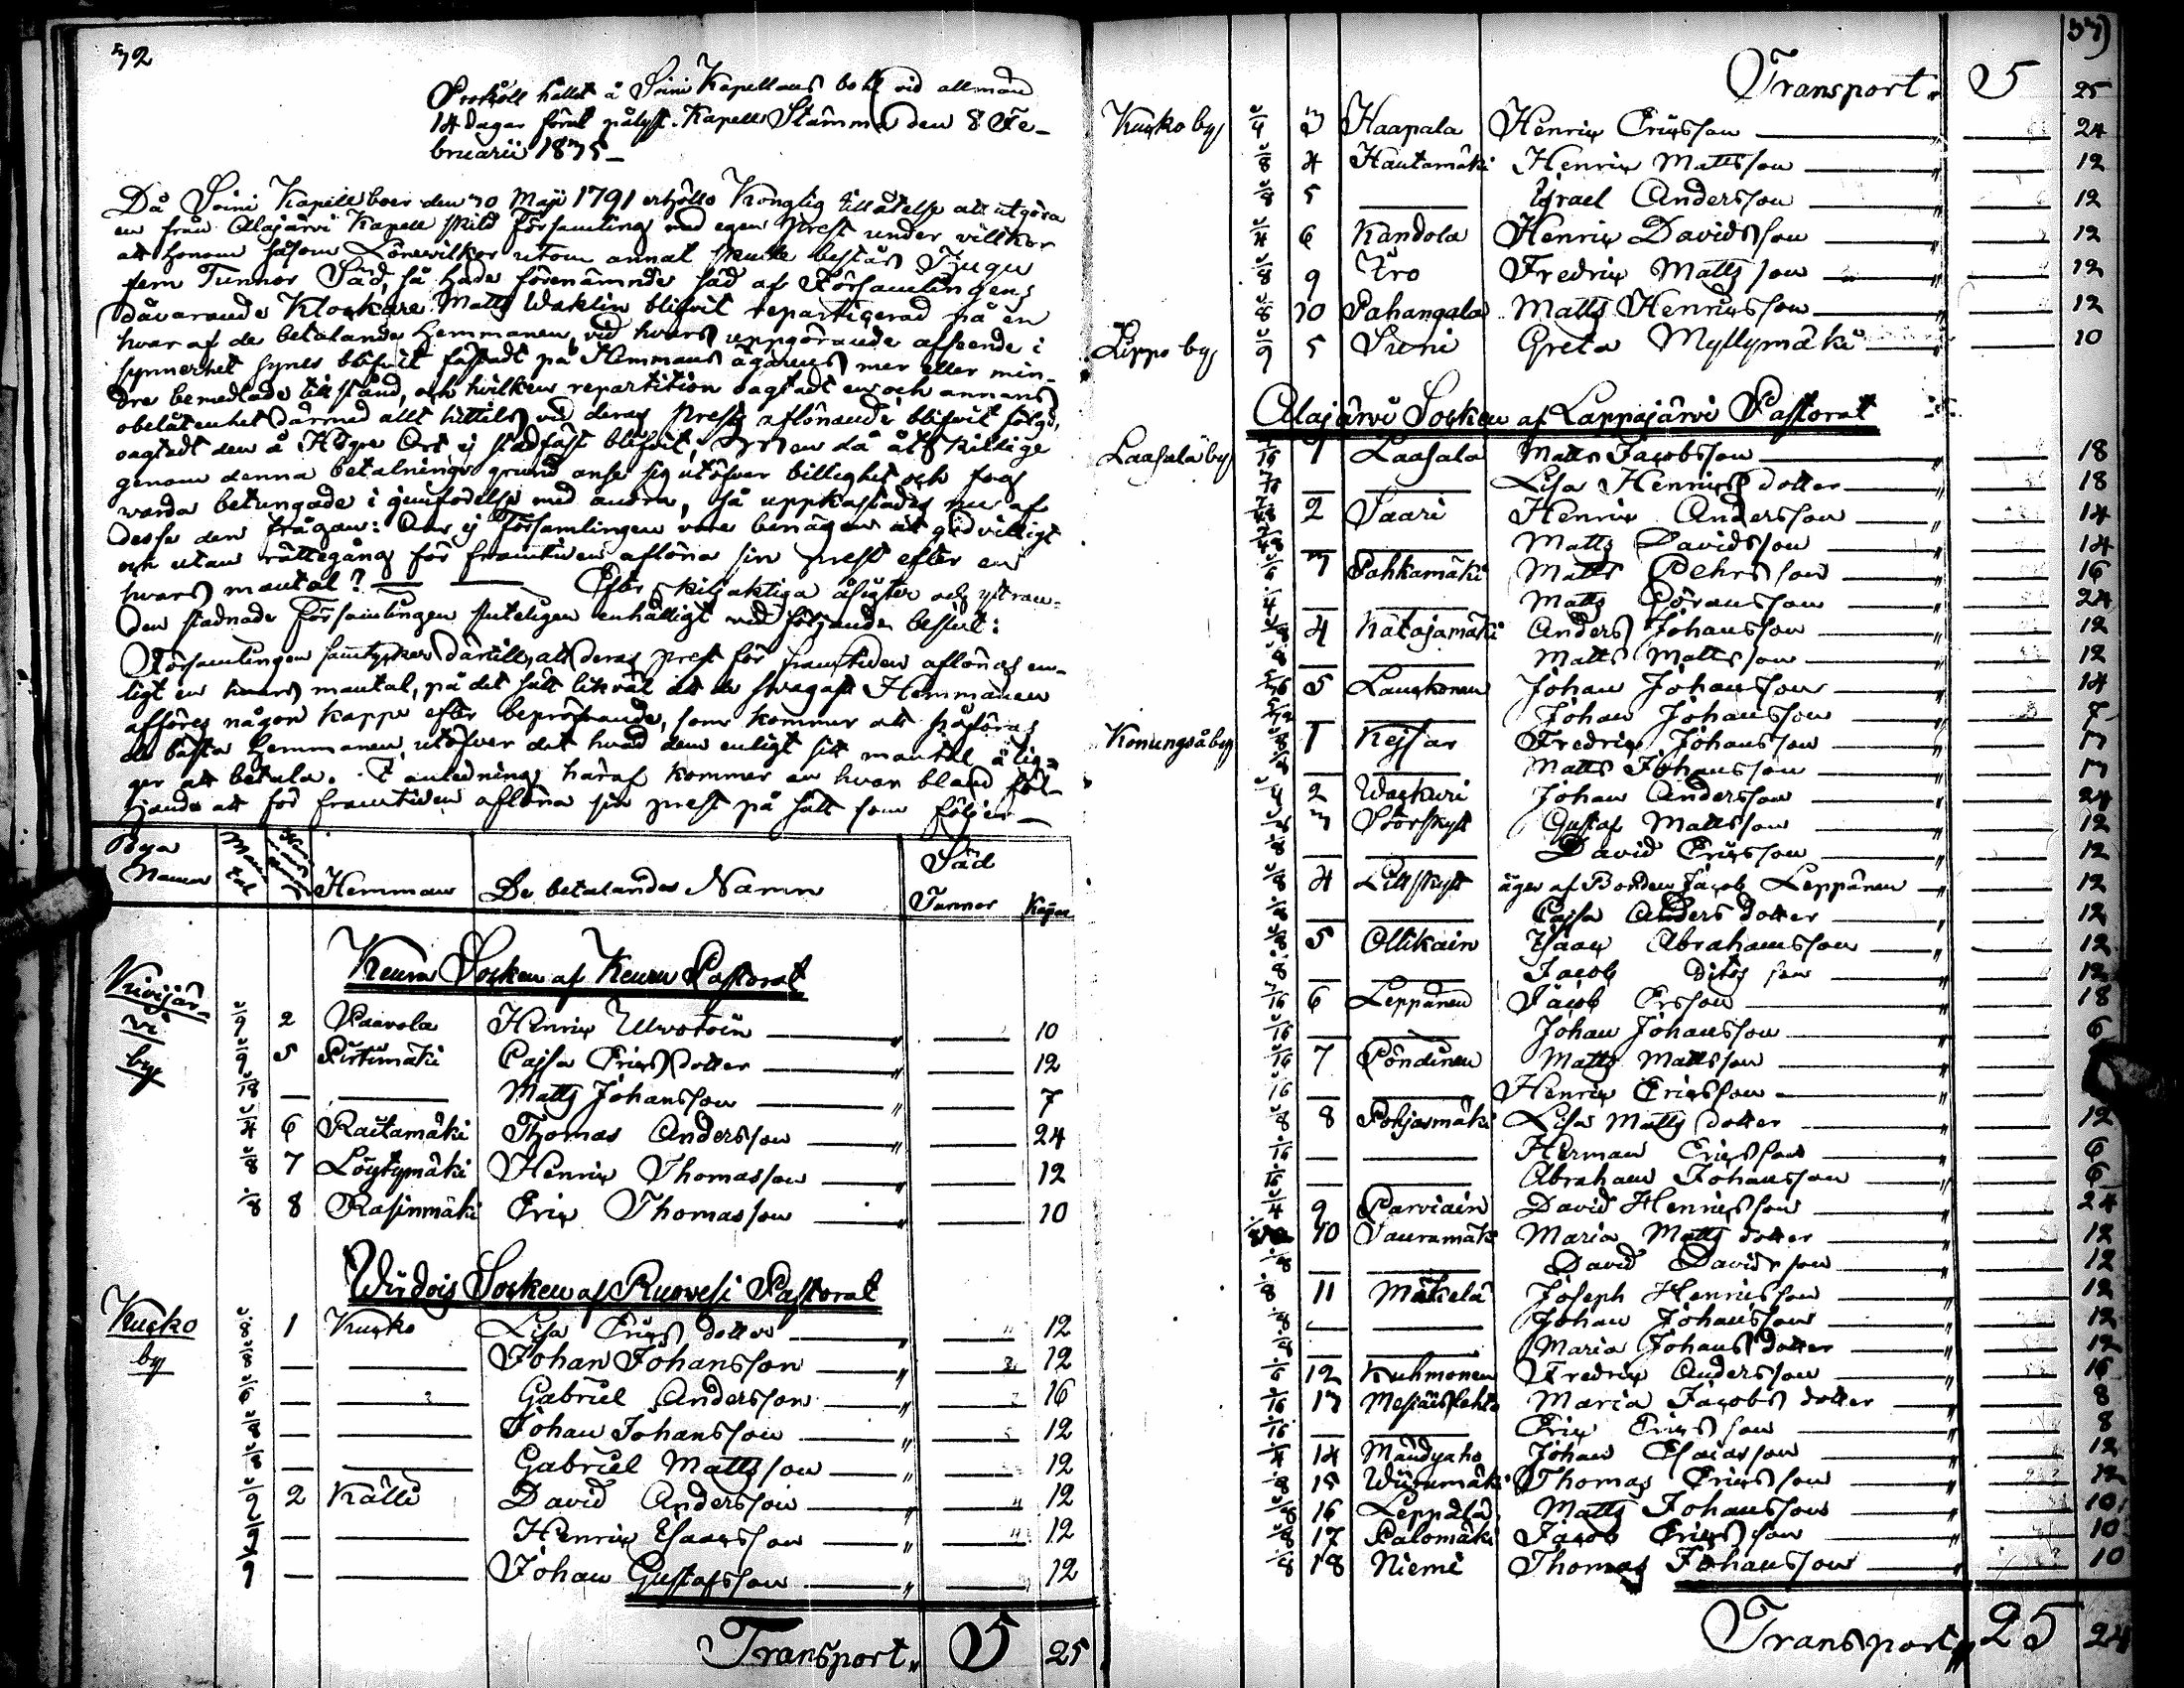 32
Protokoll hållit å Soini Kapellans bohl vid allmän
14 dagar förut pålyst Kapell Stämma den 8 Fe-
bruarii 1835 –
Då Soini Kapellboer den 30 Maji 1791 erhöllo Konglig tillåtelse att utgöra
en från Alajärvi Kapell skild Församling med egen Prest under villkor
att honom såsom Lönevilkor utom annat skulle bestås Tjugu
fem Tunnor Säd, så hade förenämnde säd af Församlingens
dåvarande Klockare Matts Wahlin blifvit repartigerad på en
hvar af de betalande Hemmanen, vid hvars uppgörande afseende i
synnerhet synes blifvit fästadt på Hemmans ägarens mer eller min-
dre bemedlade tillstånd, och hvilken repartition oagtadt en och annans
obelåtenhet därmed allt hittils vid deras Prests aflönande blifvit följd,
oagtadt den å Högre Ort ej stadfäst blifvit, Men då åtskillige
genom denna betalnings grund anse sig utöfver billighet och fog
varda betungade i jemförelse med andra, så uppkastades nu af
desse den frågan: Om ej Församlingen vore benägen att godvilligt
och utan rättegång för framtiden aflöna sin prest efter en
hvars mantal? — — Efter skiljaktiga åsigter och yttran-
den stadnade Församlingen sluteligen enhälligt vid följande beslut:
Församlingen samtycker därtill, att deras prest för framtiden aflönas en-
ligt en hvars mantal, på det sätt likväl att de svagast Hemmanen
afföres någon kappe efter bepröfvande, som kommer att påföras
de bästa Hemmanen, utöfver det hvad dem enligt sitt mantal ålig-
ger att betala. I anledning häraf kommer en hvar bland föl-
jande att för framtiden aflöna sin prest på sätt som följer –
Bya Namn Man tal Hemman De betalandes Namn Säd Tunnor Kappar
Keuru Socken af Keuru Pastorat
Kivijär-
vi
by
1/9 2 Paavola Henric — " — 10
1/9 5 Pirtimäki Cajsa Ericsdotter — " — 12
1/18 — — Matts Johansson — " — 7
1/4 6 Raitamäki Thomas Andersson — " — 24
1/8 7 Löytymäki Henric Thomasson — " — 12
1/8 8 Rasinmäki Eric Thomasson — " — 10
Wirdois Socken af Ruovesi Pastorat
Kucko
by
1/8 1 Kucko Lisa Ericsdotter — " — 12
1/8 — — Johan Johansson — " — 12
1/6 — — Gabriel Andersson — " — 16
1/8 — — Johan Johansson — " — 12
1/8 — — Gabriel Mattsson — " — 12
1/9 2 Källi David Andersson — " — 12
1/9 — — Henric Isaacsson — " — 12
1/9 — — Johan Gustafsson — " — 12
Transport " 5 25
33)
Transport " 5 25
Kucko by 1/4 3 Haapala Henric Ericsson — " — 24
1/8 4 Hautamäki Henric Mattsson — " — 12
1/8 5 — Israel Andersson — " — 12
1/4 6 Kandola Henric Davidsson — " — 12
1/8 9 Yro Fredric Mattsson — " — 12
1/8 10 Pahangala Matts Henricsson — " — 12
Lippo by 1/9 5 Greta Myllymäki — " — 10
Alajärvi Socken af Lappajärvi Pastorat
Laasala by 3/16 1 Laasala Matts Jacobsson — " — 18
3/16 — — Lisa Henricsdotter — " — 18
7/48 2 Saari Henric Andersson — " — 14
7/48 — — Matts Davidsson — " — 14
1/6 3 Pahkamäki Matts Pehrsson — " — 16
1/4 — — Matts Göransson — " — 24
1/8 4 Katajamäki Anders Johansson — " — 12
1/8 — — Matts Mattsson — " — 12
5 Laurkonen Johan Johansson — " — 14
— — Johan Johansson — " — 7
Konungså by 1/8 1 Kejsar Fredric Johansson — " — 13
1/8 — — Matts Johansson — " — 13
1/4 2 Wackuri Johan Andersson — " — 24
1/8 3 Storskytt Gustaf Mattsson — " — 12
1/8 — — David Ericsson — " — 12
1/8 4 Lillskytt äges af Bonden Jacob Leppänen — " — 12
1/8 — — Cajsa Andersdotter — " — 12
1/8 5 Ollikain Isaac Abrahamsson — " — 12
1/8 — — Jacob ditos son — " — 12
3/16 6 Leppänen Jacob Ersson — " — 18
1/16 — — Johan Johansson — " — 6
1/16 7 Pöndinen Matts Mattsson — " —
1/16 — — Henric Ericsson — " —
1/8 8 Pohjasmäki Lisa Mattsdotter — " — 12
1/16 — — Herman Ericsson — " — 6
1/16 — — Abraham Johansson — " — 6
1/4 9 Parviain David Henricsson — " — 24
1/8 10 Sauramäki Maria Mattsdotter — " — 12
1/8 — — David Davidsson — " — 12
1/8 11 Mäkelä Joseph Henricsson — " — 12
1/8 — — Johan Johansson — " — 12
1/8 — — Maria Johansdotter — " — 12
1/6 12 Kuhmonen Fredric Andersson — " — 16
1/16 13 Mesiäislehto Maria Jacobsdotter — " — 8
1/16 — — Eric Ericsson — " — 8
1/4 14 Mändyaho Johan Esaiasson — " — 12
1/8 15 Wuorimäki Thomas Ericsson — " — 12
1/8 16 Leppälä Matts Johansson — " — 10
1/8 17 Palomäki Jacob Ericsson — " — 10
1/8 18 Niemi Thomas Johansson — " — 10
Transport " 25 24